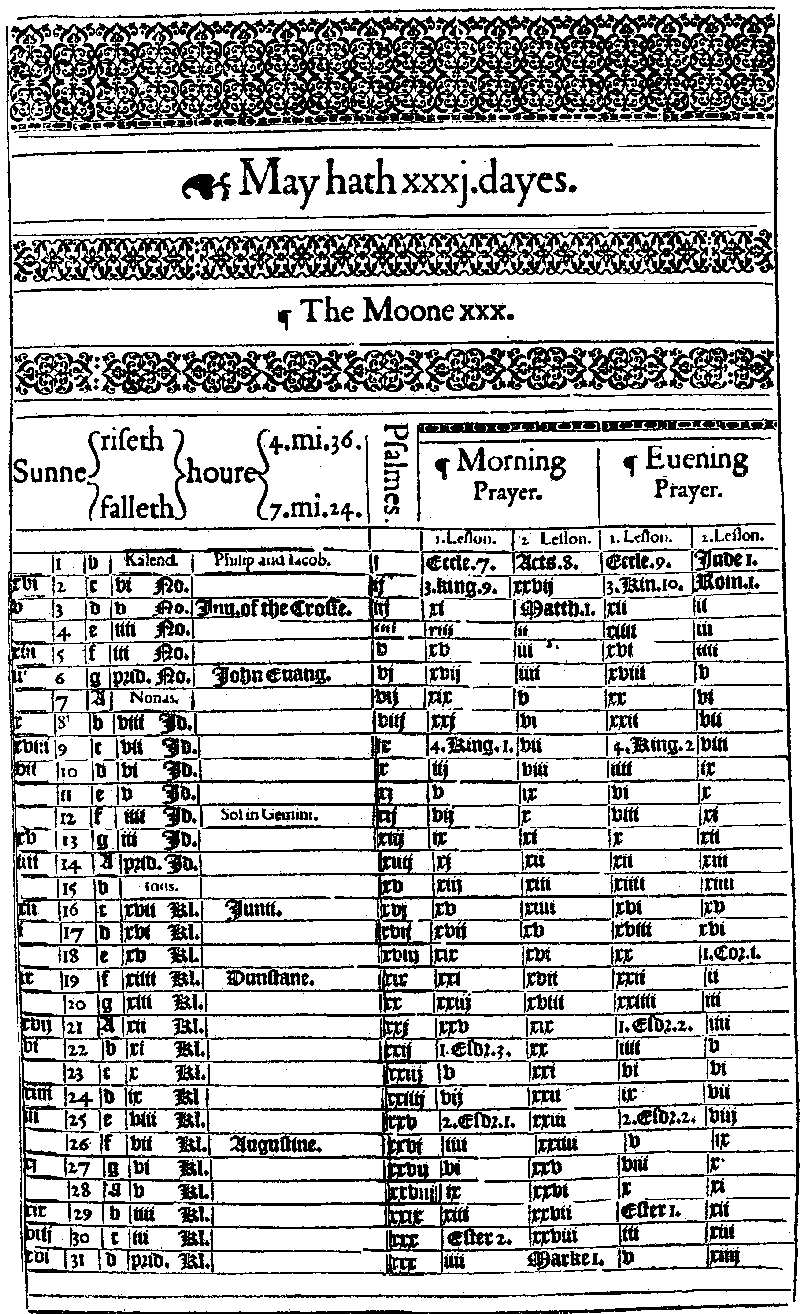 May hath xxxj. dayes.
¶ The Moone xxx.
Sunne { riseth } houre { 4.mi.36. Psalmes. ¶ Morning Prayer. ¶ Euening Prayer.
{ falleth } { 7.mi.24.
1.Lesson. 2 Lesson. 1.Lesson. 2.Lesson.
1 b Kalend. Philip and Iacob. j Eccle.7. Acts.8. Eccle.9. Jude 1.
xvi 2 c vi No. ij 3.king.9. xxviij 3.Kin.10. Rom.1.
v 3 d v No. Inu.of the Crosse. iij xi Matth.1. xii ii
4 e iiii No. iiii xiii ii xiiii iii
xiii 5 f iii No. v xv iii xvi iiii
ii 6 g prid. No. John Euang. vj xvij iiii xviii v
7 A Nonas. vij xix v xx vi
x 8 b viii Id. viij xxj vi xxii vii
xviii 9 c vii Id. ix 4.King.1. vii 4.King.2 viii
vii 10 d vi Id. x iij viii iiii ix
11 e v Id. xj v ix vi x
12 f iiii Id. Sol in Gemini. xij vij x viii xi
xv 13 g iii Id. xiij ix xi x xii
iiii 14 A prid. Id. xiiij xj xii xii xiii
15 b Idus. xv xiij xiii xiiii xiiii
xii 16 c xvii Kl. Junii. xvj xv xiiii xvi xv
i 17 d xvi Kl. xvij xvij xv xviii xvi
18 e xv Kl. xviij xix xvi xx 1.Cor.1.
ix 19 f xiiii Kl. Dunstane. xix xxi xvii xxii ii
20 g xiii Kl. xx xxiij xviii xxiiii iii
xvij 21 A xii Kl. xxj xxv xix 1.Esdr.2. iiii
vi 22 b xi Kl. xxij 1.Esdr.3. xx iiii v
23 c x Kl. xxiij v xxi vi vi
xiiii 24 d ix Kl xxiiij vij xxii ix vii
iii 25 e viii Kl. xxv 2.Esdr.1. xxiii 2.Esdr.2. viij
26 f vii Kl. Augustine. xxvi iiii xxiiii v ix
xj 27 g vi Kl. xxvii vi xxv viii x
28 A v Kl. xxviij ix xxvi x xi
xix 29 b iiii Kl. xxix xiii xxvii Ester 1. xii
viij 30 c iii Kl. xxx Ester 2. xxviii iii xiii
xvi 31 d prid. Kl. xxx iiii Marke 1. v xiiij